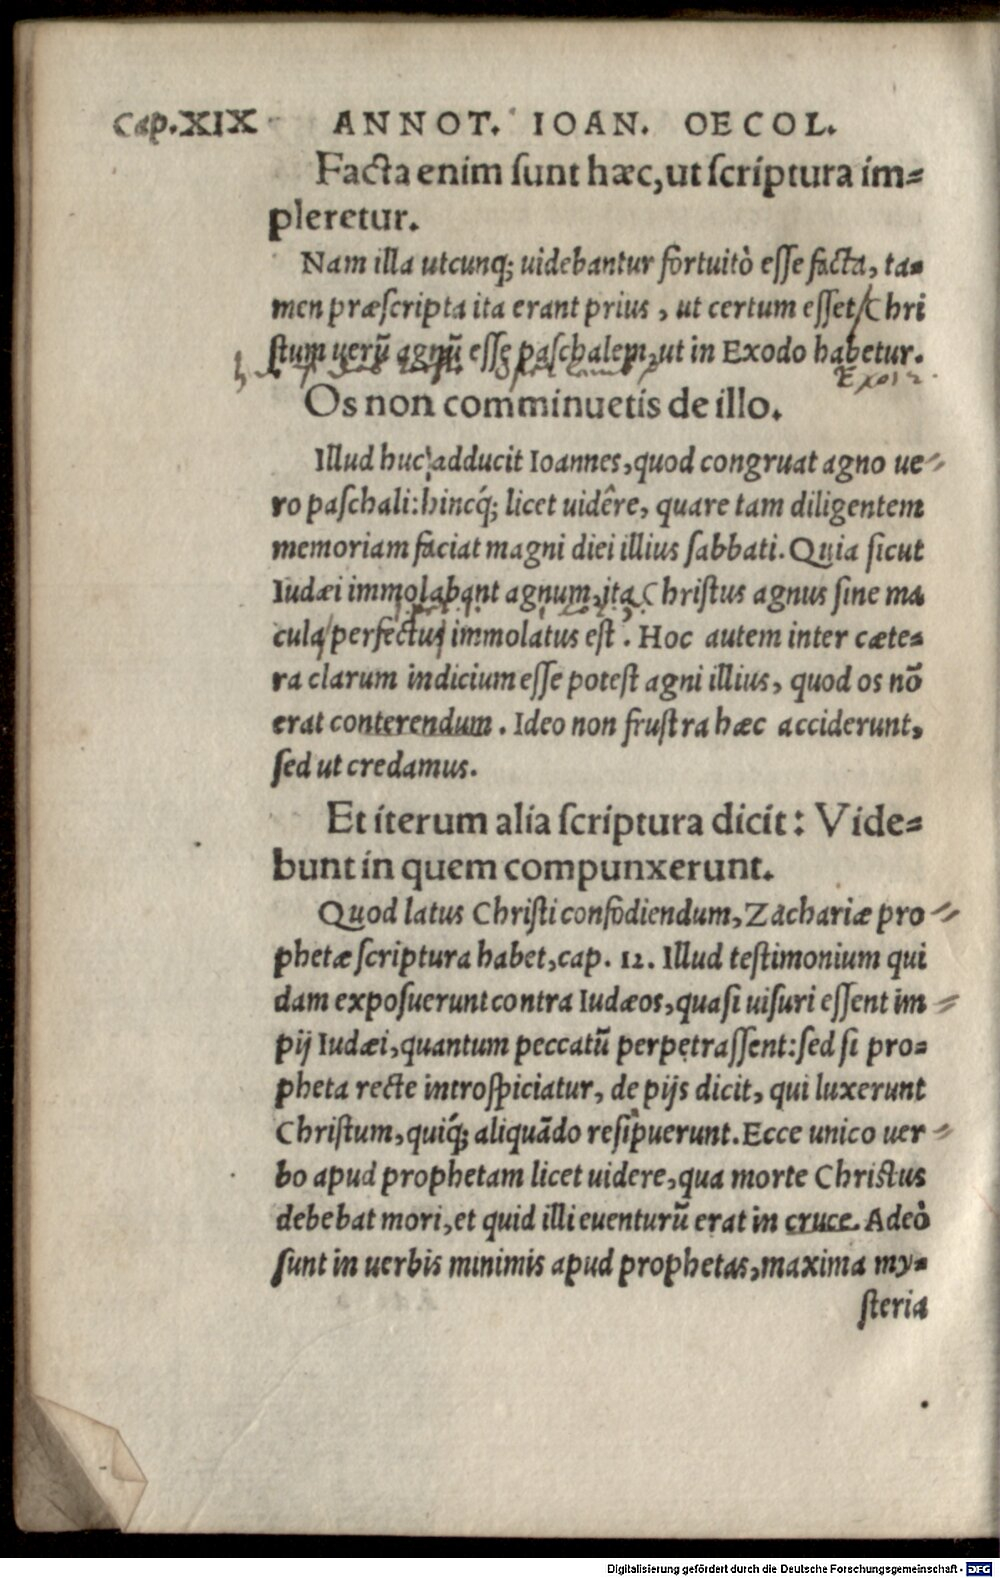 Cap.XIX ANNOT. IOAN. OECOL.
Facta enim ſunt hæc, ut ſcriptura im⸗
pleretur.
Nam illa utcunq; uidebantur fortuitò eſſe facta, ta⸗
men præſcripta ita erant prius, ut certum eſſet, Chri
ſtum uerũ agnũ eſſe paſchalem, ut in Exodo habetur.
Exo 12.
Os non comminuetis de illo.
Illud huc adducit Ioannes, quod congruat agno ue⸗
ro paſchali: hincq́; licet uidêre, quare tam diligentem
memoriam faciat magni diei illius ſabbati. Quia ſicut
Iudæi immolabant agnum, ita Chriſtus agnus ſine ma
cula perfectus immolatus eſt. Hoc autem inter cæte⸗
ra clarum indicium eſſe poteſt agni illius, quod os nõ
erat conterendum. Ideo non fruſtra hæc acciderunt,
ſed ut credamus.
Et iterum alia ſcriptura dicit: Vide⸗
bunt in quem compunxerunt.
Quod latus Chriſti confodiendum, Zachariæ pro⸗
phetæ ſcriptura habet, cap. 12. Illud teſtimonium qui
dam expoſuerunt contra Iudæos, quaſi uiſuri eſſent im⸗
pij Iudæi, quantum peccatũ perpetraſſent: ſed ſi pro⸗
pheta recte introſpiciatur, de pijs dicit, qui luxerunt
Chriſtum, quiq́; aliquãdo reſipuerunt. Ecce unico uer⸗
bo apud prophetam licet uidere, qua morte Chriſtus
debebat mori, et quid illi euenturũ erat in cruce. Adeò
ſunt in uerbis minimis apud prophetas, maxima my⸗
ſteria
Digitalisierung gefördert durch die Deutsche Forschungsgemeinschaft - DFG